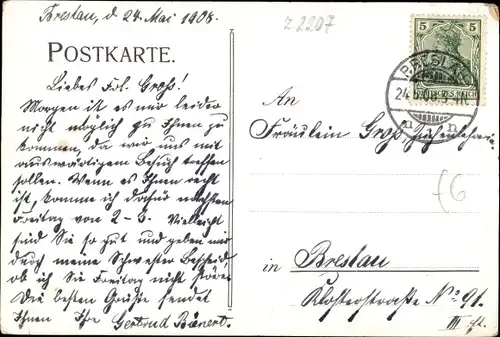 Breslau, d 24. Mai 1908.
Z 2207
POSTKARTE.
Liebes Frl. Groß!
Morgen ist es mir leider
nicht möglich zu Ihnen zu
kommen, da wir uns mit
auswärtigem Besuch treffen
sollen. Wenn es Ihnen recht
ist, komme ich dafür nächsten
Freitag von 2-3. Vielleicht
sind Sie so gut und geben mir
durch meine Schwester Bescheid
ob ich Sie Freitag nicht störe.
Die besten Grüße sendet
Ihnen Ihre Gertrud Bienert.
5 5
DEUTSCHES REICH
BRESLAU
24.5.08
n
An
Fräulein Groß,
f6
in Breslau
Klosterstraße No 91.
III Et.